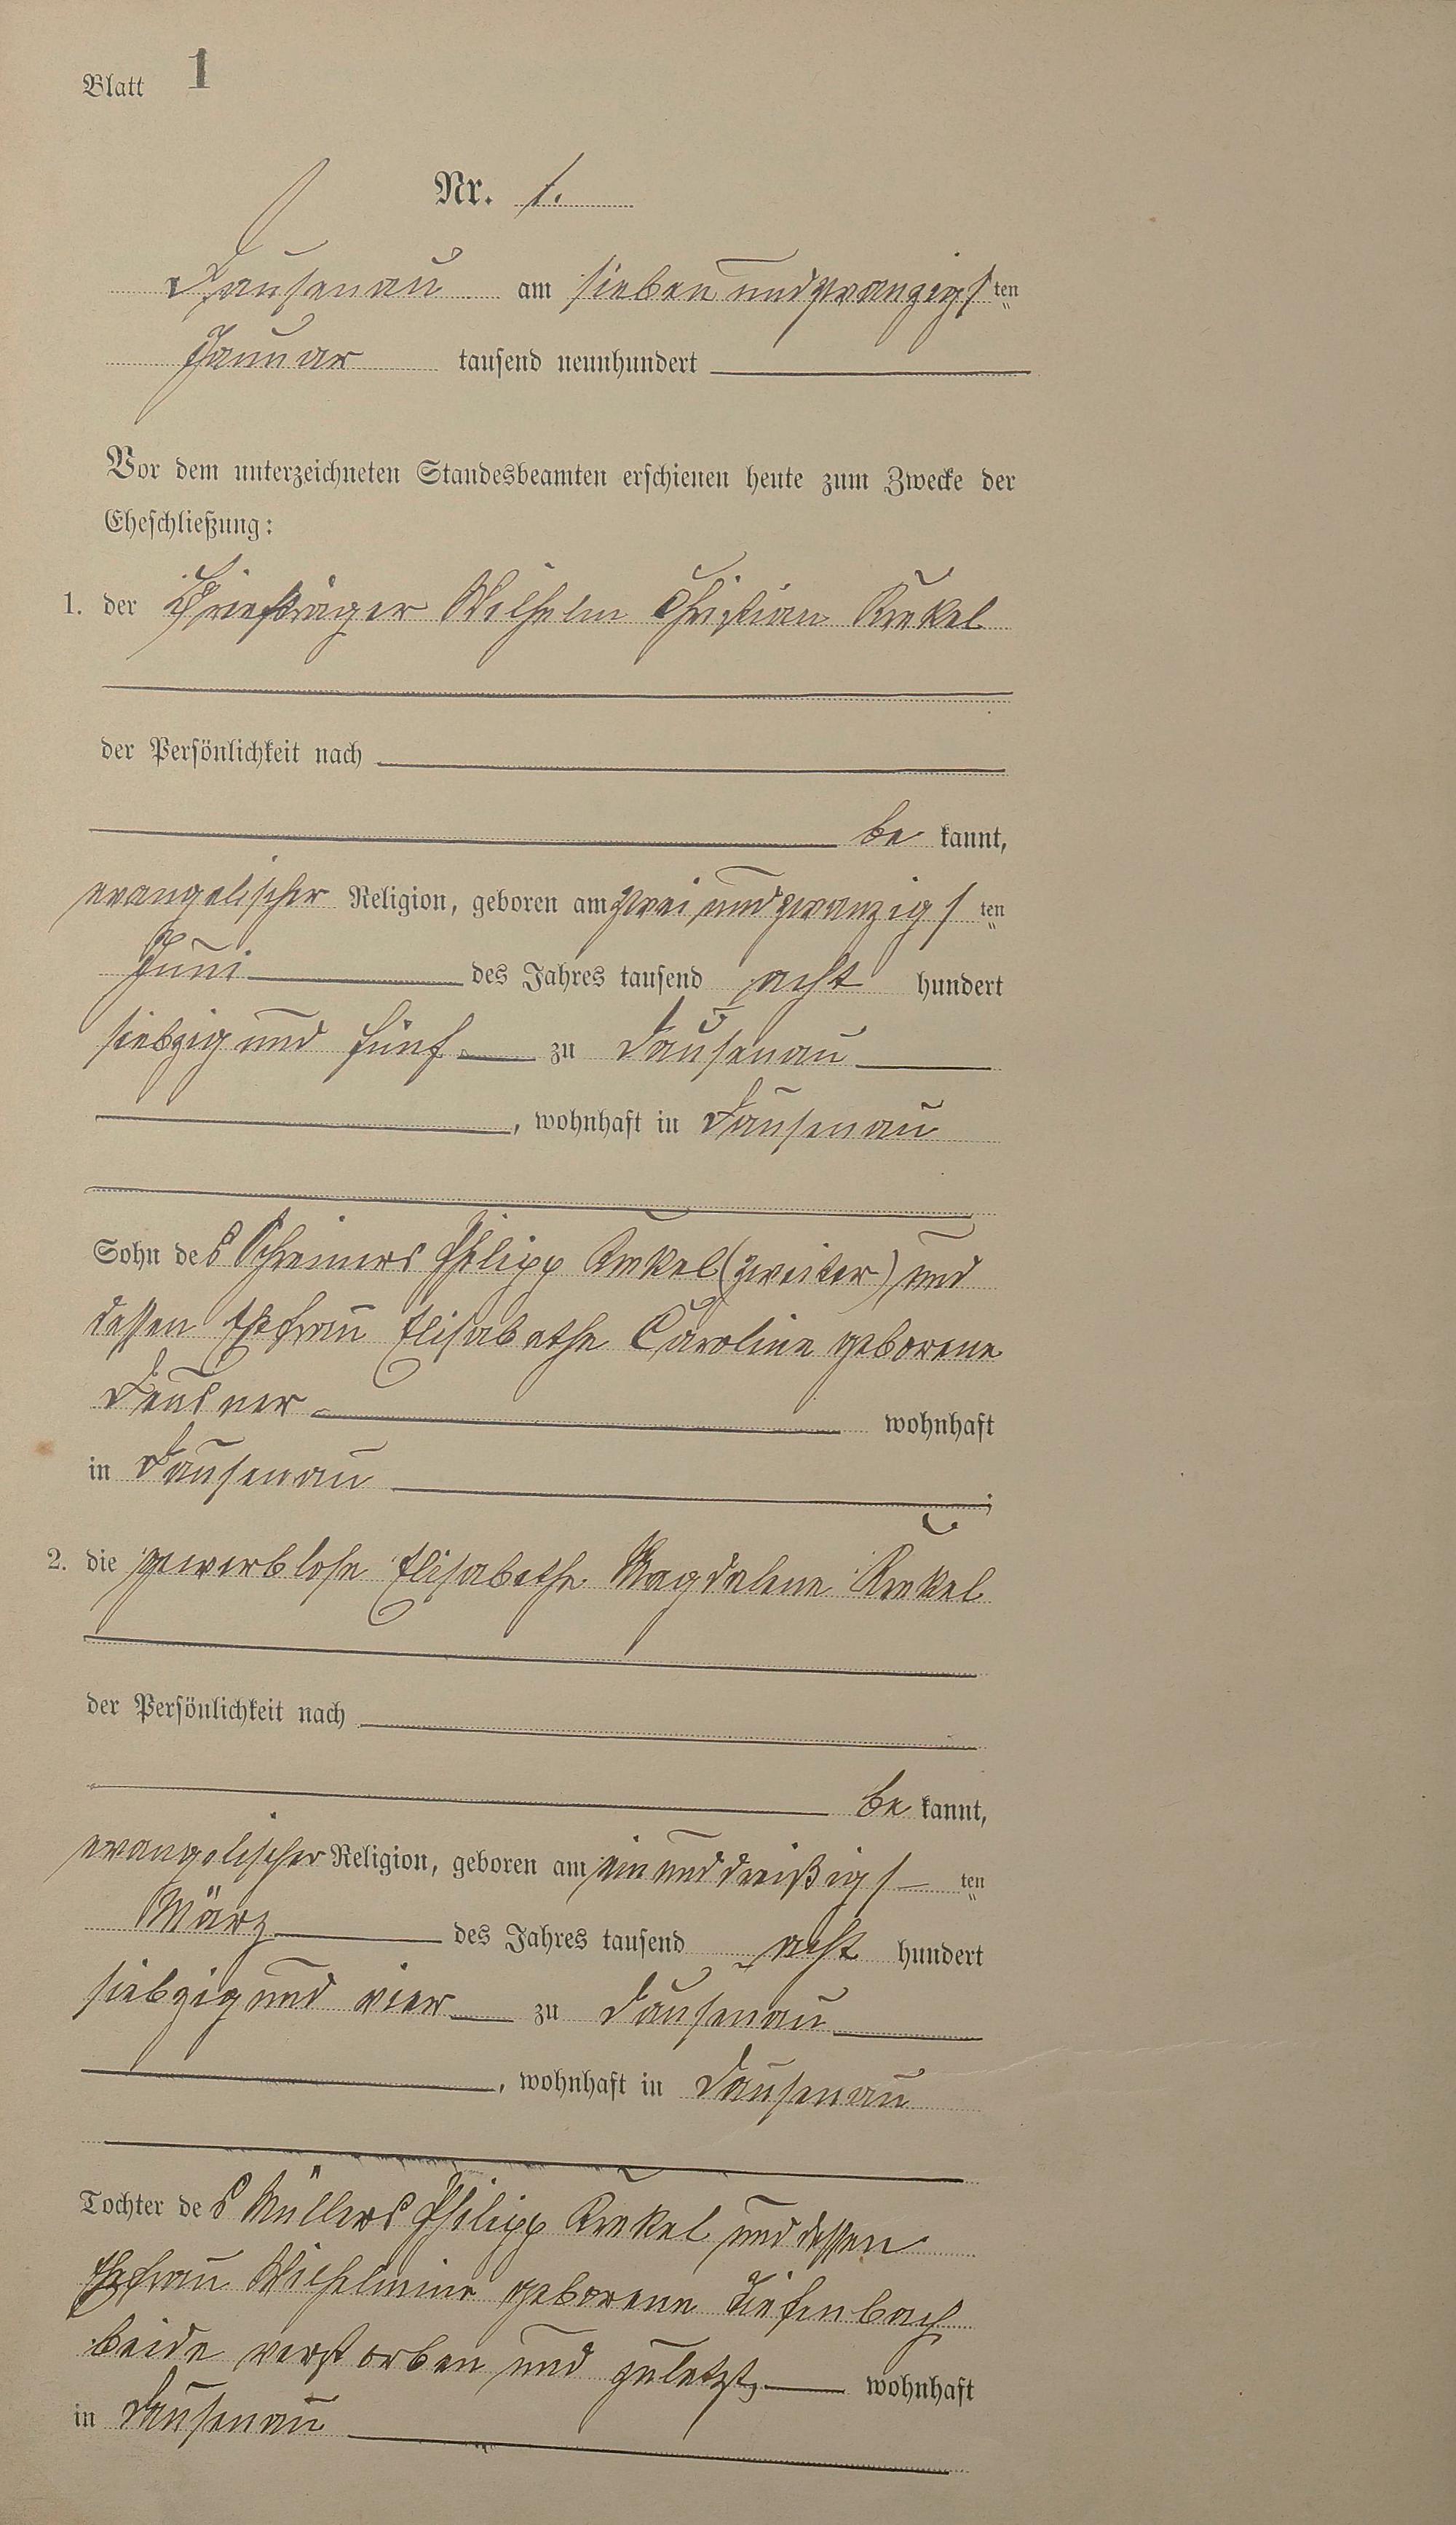 Blatt 1
Nr. 1.
Dausenau am sieben und zwanzigsten
Januar tausend neunhundert
Vor dem unterzeichneten Standesbeamten erschienen heute zum Zwecke der
Eheschließung:
1. der Briefträger Wilhelm Christian Kunkel
der Persönlichkeit nach
be kannt,
evangelischer Religion, geboren am zwei und zwanzigsten
Juni des Jahres tausend acht hundert
siebzig und fünf zu Dausenau
, wohnhaft in Dausenau
Sohn des Schreiners Philipp Kunkel (zweiter) und
dessen Ehefrau Elisabethe Caroline geborene
wohnhaft
in Dausenau ;
2. die gewerblose Elisabethe Magdalene Kunkel
der Persönlichkeit nach
be kannt,
evangelischer Religion, geboren am ein und dreißigsten
März des Jahres tausend acht hundert
siebzig und vier zu Dausenau
, wohnhaft in Dausenau
Tochter des Müllers Philipp Kunkel und dessen
Ehefrau Wilhelmine geborene Tiefenbach
beide verstorben und zuletzt wohnhaft
in Dausenau